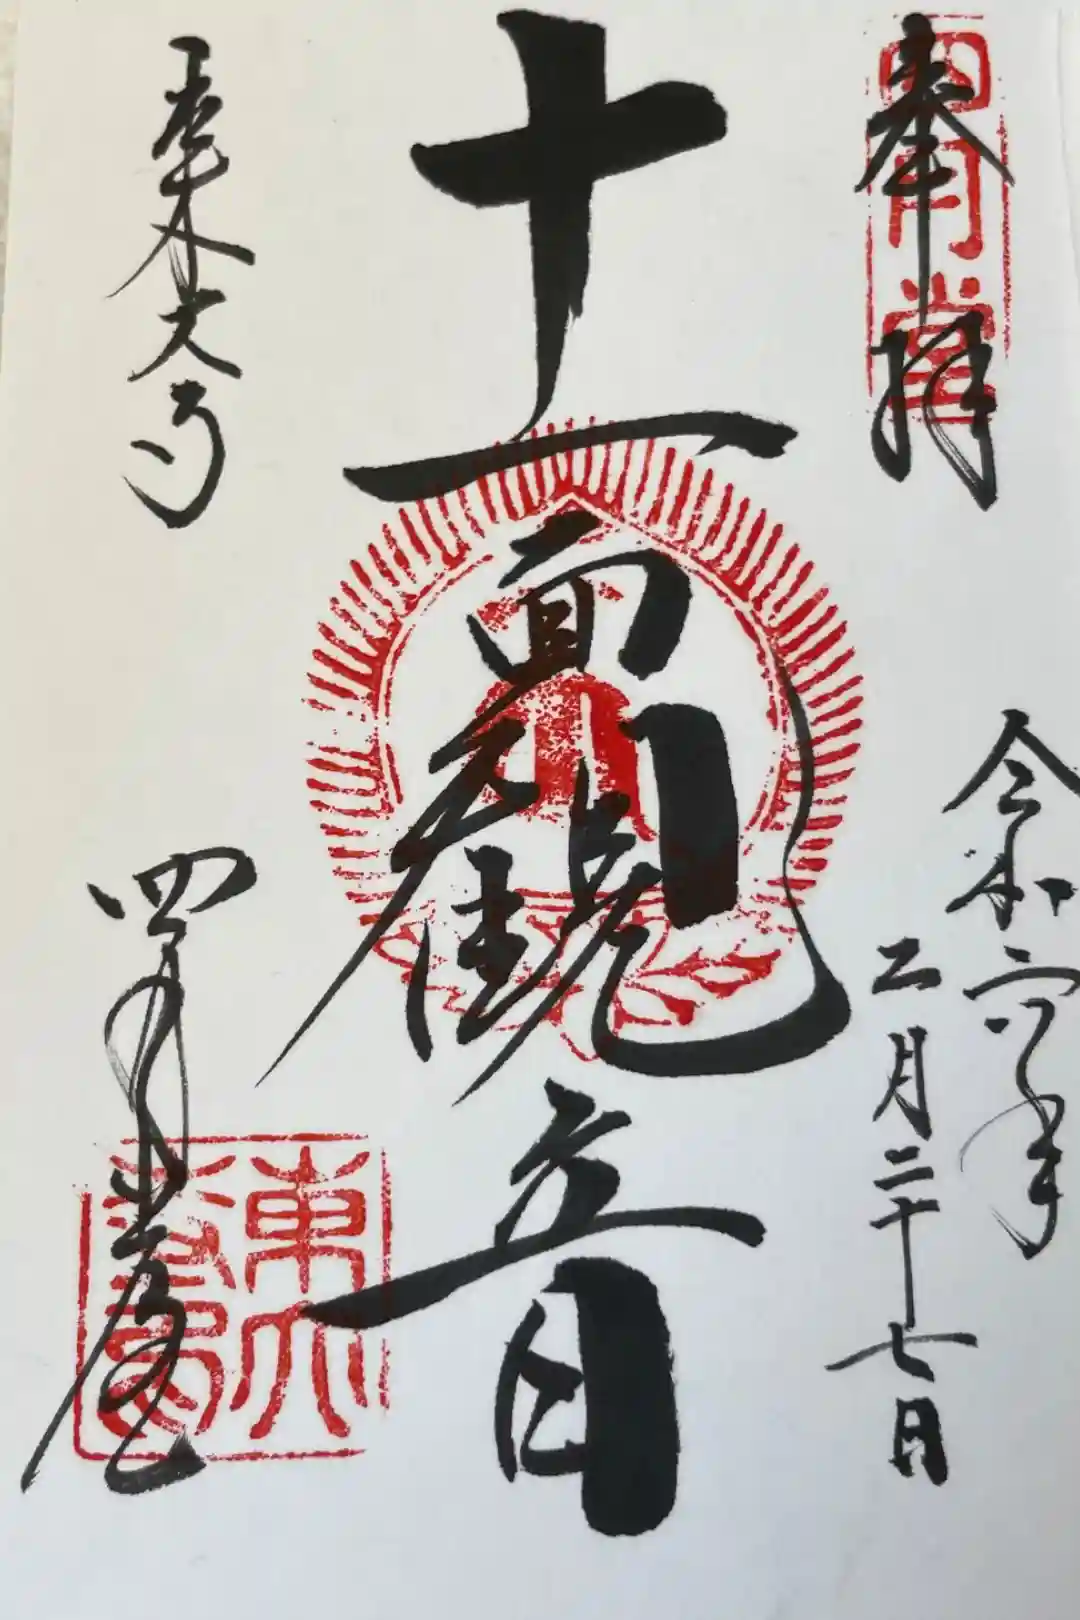 奉拝
四月堂
令和六年
二月二十七日
十一面観音
東大寺
四月堂
東大